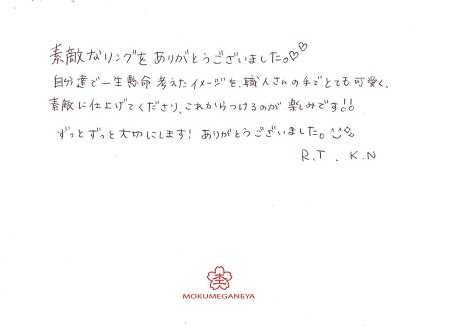 素敵なリングをありがとうございました。♡♡
自分達で一生懸命考えたイメージを、職人さんの手でとても可愛く、
素敵に仕上げてくださり、これからつけるのが楽しみです!!
ずっとずっと大切にします! ありがとうございました。
R.T . K.N
MOKUMEGANEYA